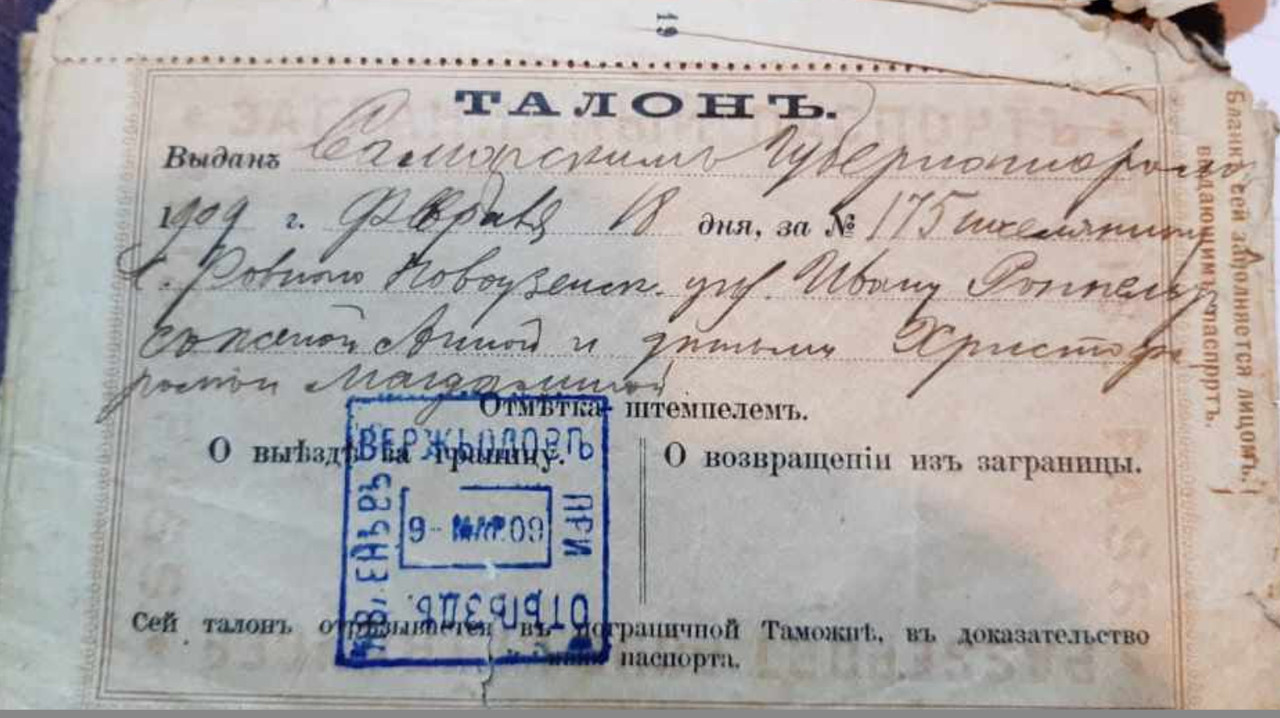 19
ТАЛОНЪ.
Выданъ Самарскимъ Губернаторомъ
1909 г. Февраля 18 дня, за № 175
с. Ровного Новоузенск. уѣзд. Ивану
съ женой Анной и дѣтьми Христоф
Магдалиной
Отмѣтка штемпелемъ.
О выѣздѣ за границу.
О возвращеніи изъ заграницы.
ВЕРЖБОЛОВЪ
ПРИ
ОТЪѢЗДѢ
ЯВЛЕНЪ ВЪ
9 - МАР. 09
Сей талонъ отрѣзывается въ пограничной Таможнѣ, въ доказательство
паспорта.
Бланкъ сей заполняется лицомъ,
выдающимъ паспортъ.